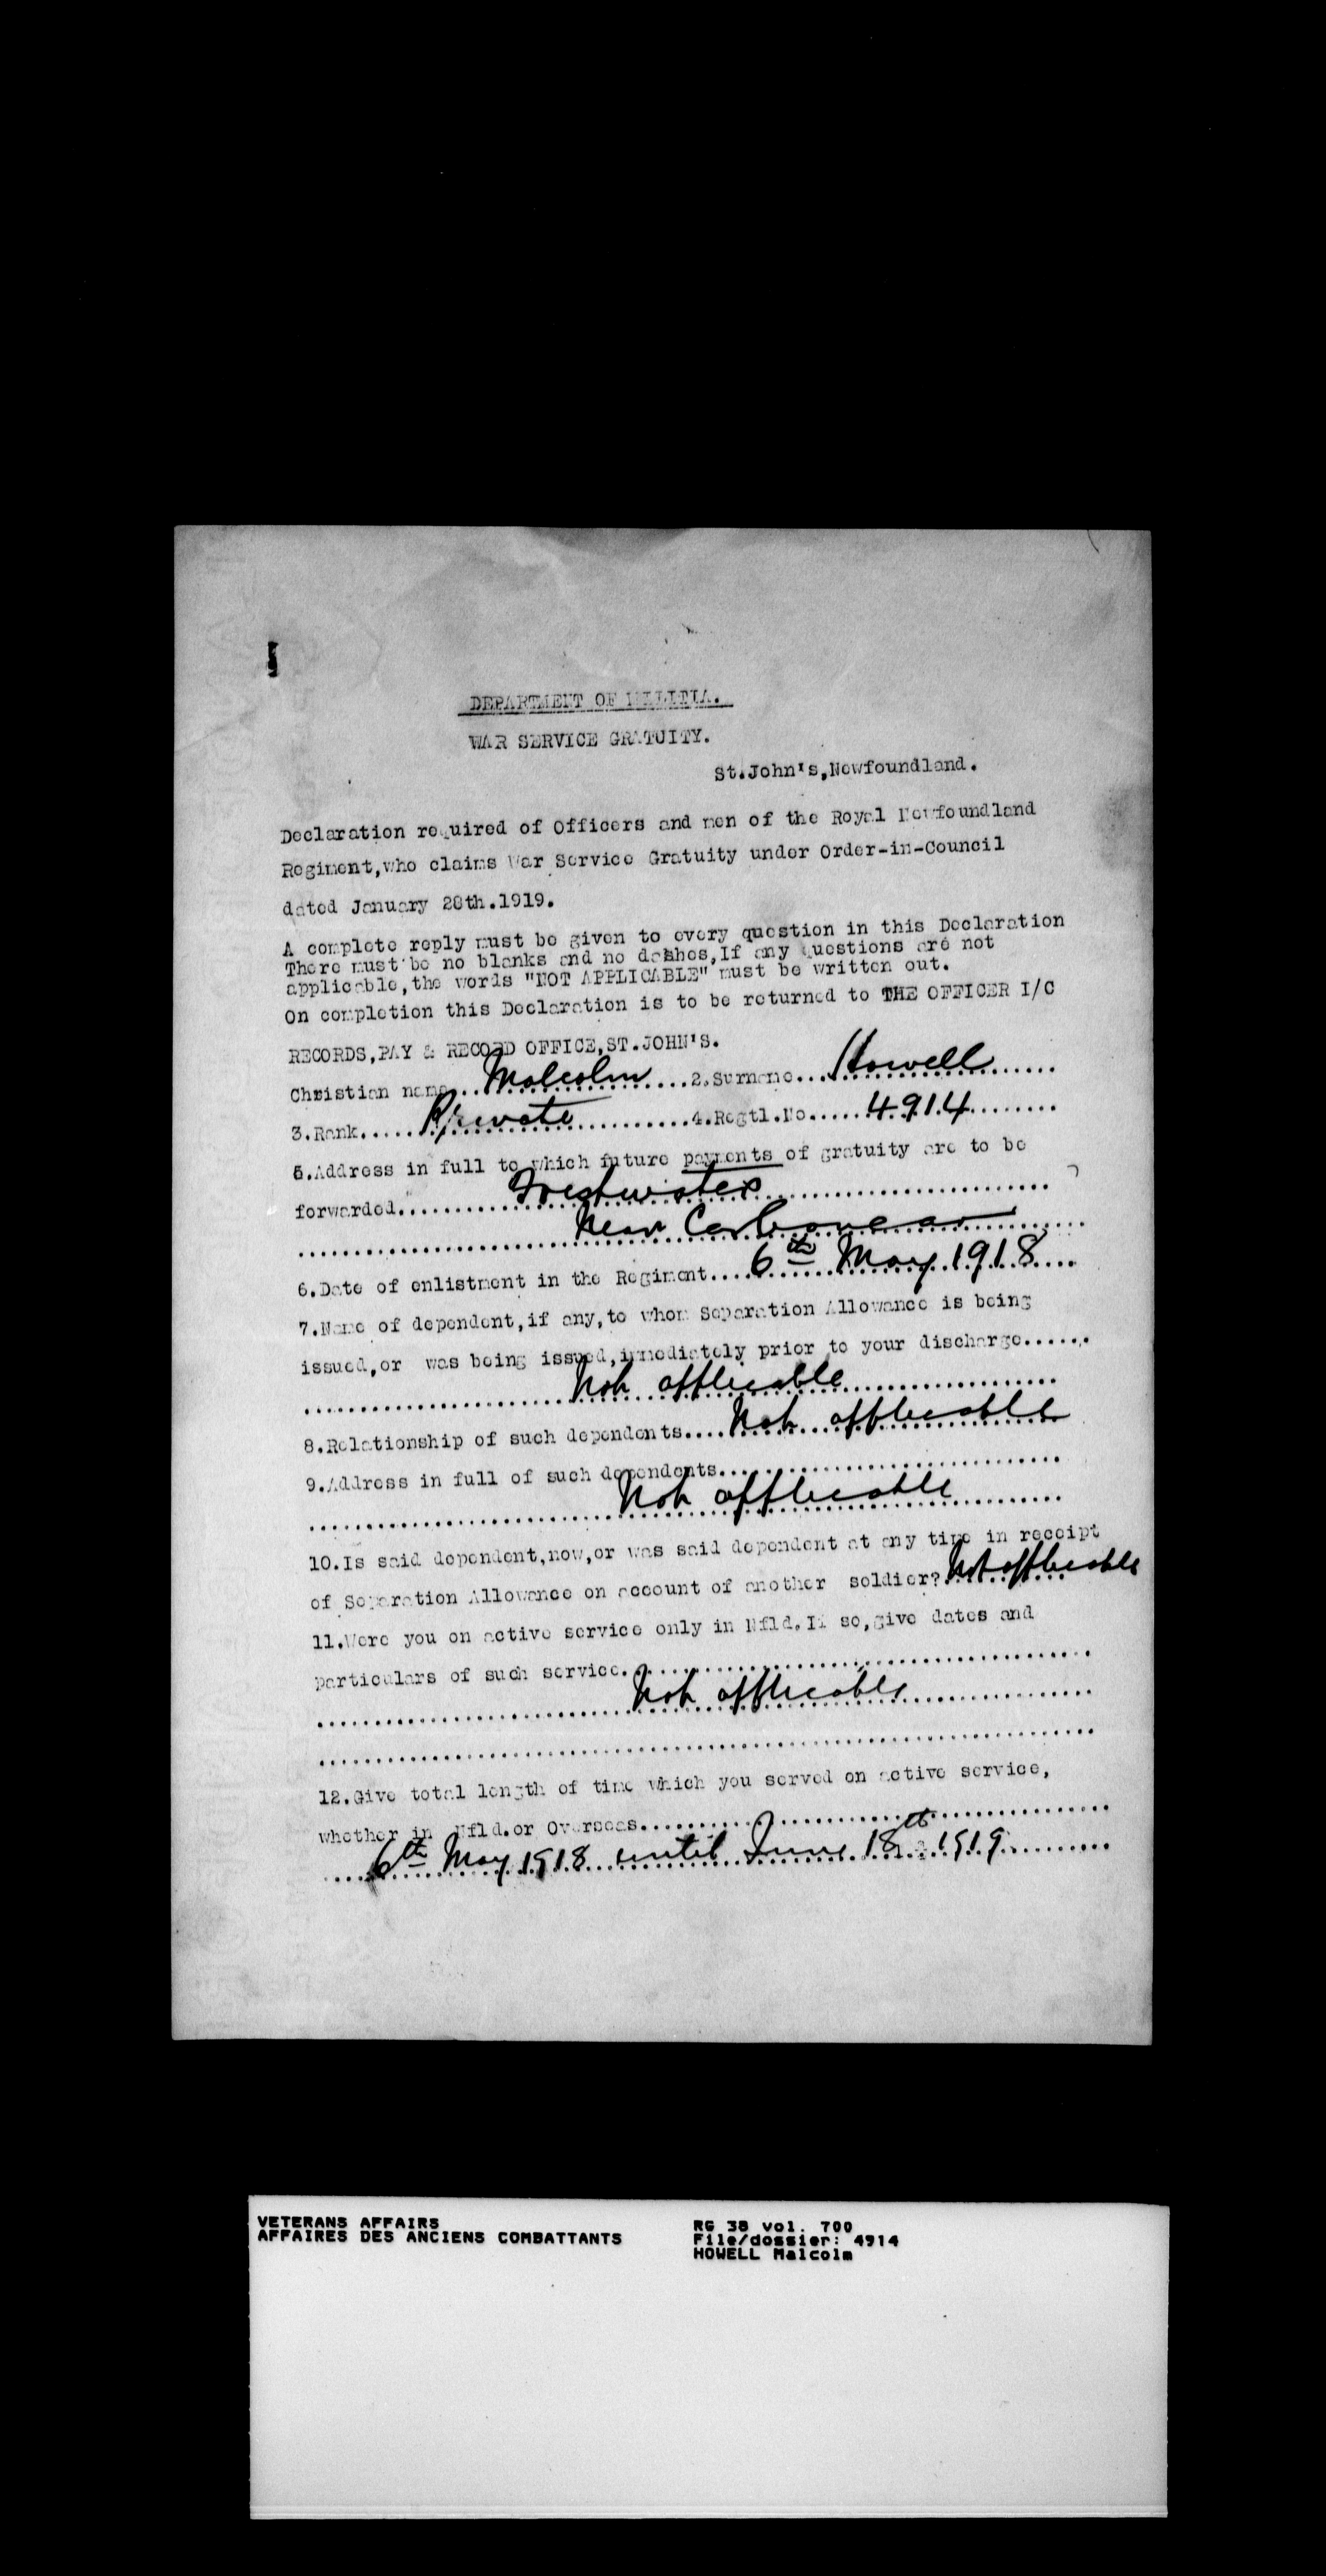 DEPARTMENT OF MILITIA.
WAR SERVICE GRATUITY.
St.John's,Newfoundland.
Declaration required of Officers and men of the Royal Newfoundland
Regiment,who claims War Service Gratuity under Order-in-Council
dated January 28th.1919.
A complete reply must be given to every question in this Declaration
There must be no blanks and no dashes,If any questions are not
applicable,the words "NOT APPLICABLE" must be written out.
On completion this Declaration is to be returned to THE OFFICER I/C
RECORDS,PAY & RECORD OFFICE,ST.JOHN'S.
Christian name...Malcolm....2.Surname...Howell.....
3.Rank.....Private..........4.Regtl.No.....4914........
5.Address in full to which future payments of gratuity are to be
forwarded..........Freshwater..........................
..........Near Carbonear..........
6.Date of enlistment in the Regiment....6th May 1918....
7.Name of dependent,if any,to whom Separation Allowance is being
issued,or was being issued,immediately prior to your discharge......
..........Not applicable..........
8.Relationship of such dependents....Not applicable
9.Address in full of such dependents..............................
..........Not applicable..........
10.Is said dependent,now,or was said dependent at any time in receipt
of Separation Allowance on account of another soldier?.Not applicable
11.Were you on active service only in Nfld.If so,give dates and
particulars of such service........................................
..........Not applicable..........
....................................................................
12.Give total length of time which you served on active service,
whether in Nfld.or Overseas........................................
....6th May 1918 until June 18th 1919..........
VETERANS AFFAIRS
AFFAIRES DES ANCIENS COMBATTANTS
RG 38 vol. 700
File/dossier: 4914
HOWELL Malcolm